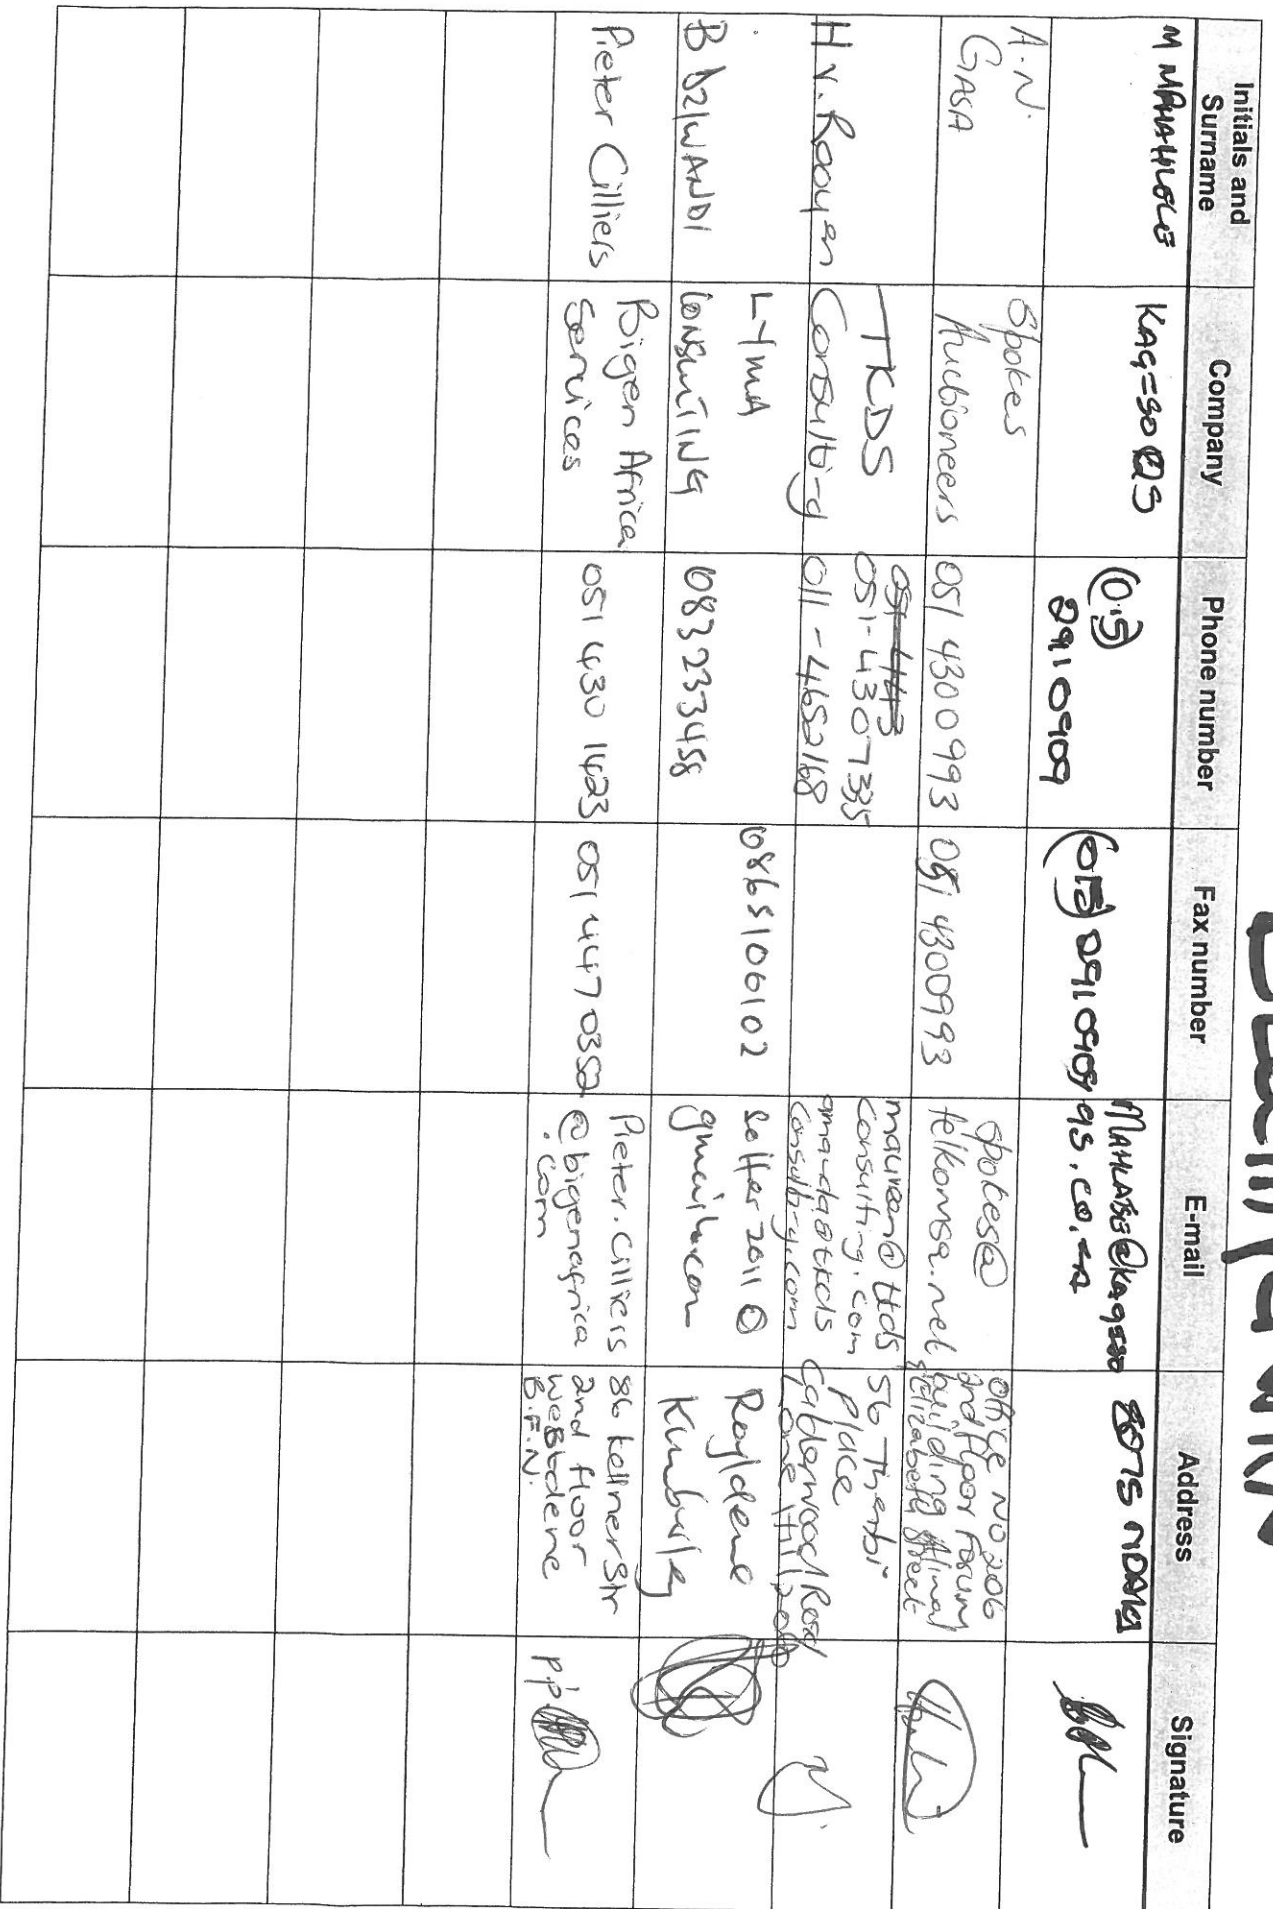 Initials and Surname
Company
Phone number
Fax number
E-mail
Address
Signature
M MPHAHLELE
KAGISO QS
(015)
2910909
(015) 2910909
MAHLABE@KAGISO
QS.CO.ZA
A.N.
GASA
Spokes
Auctioneers
051 4300993
051 4300993
spokes@
telkomsa.net
Office No 206
2nd floor Forum
building Aliwal
& Elizabeth Street
H v. Rooyen
TKDS
Consulting
051-443
051-4307335
011-4652168
maureen@tkds
consulting.com
amanda@tkds
consulting.com
56 Thembi
Place
Calderwood Road
Lone Hill
B DZIWANDI
LYMA
CONSULTING
0832333458
0865106102
selfer2011@
gmail.com
Royldene
Kimberley
Pieter Cilliers
Bigen Africa
Services
051 430 1423
051 447 0352
Pieter.Cilliers
@bigenafrica
.com
86 Kellner Str
2nd floor
Westdene
B.F.N.
p.p